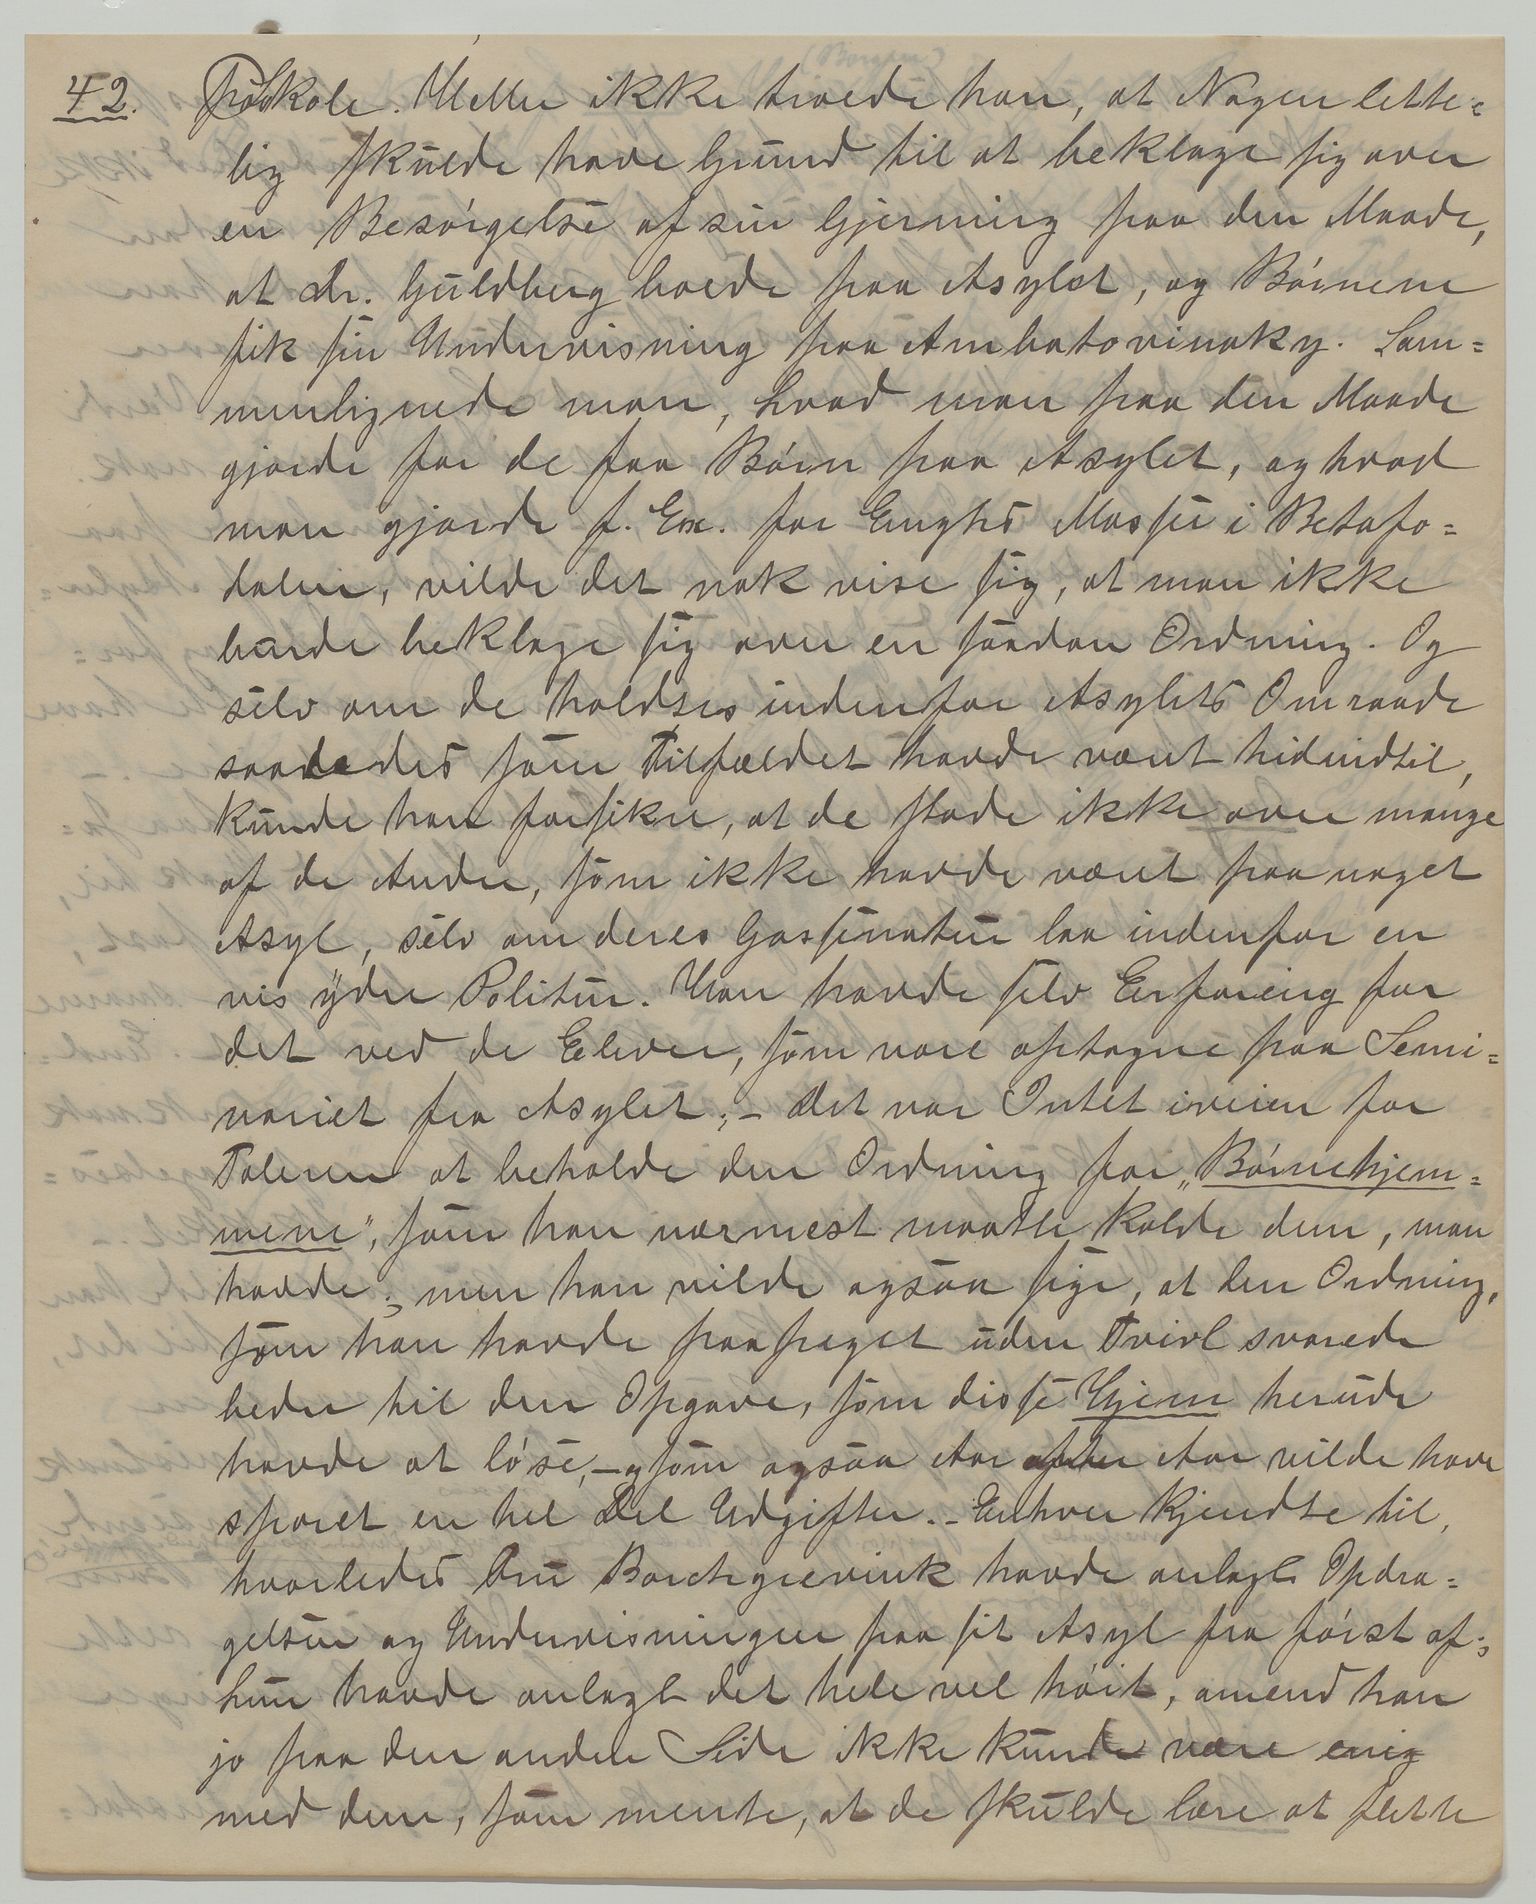 (Borgen)
42. paa Skole. Heller ikke troede han, at Nogen lette=
lig skulde have Grund til at beklage sig over
en Besørgelse af sin Gjerning paa den Maade,
at Dr. Guldberg boede paa Asylet, og Børnene
fik sin Undervisning paa Ambatovinaky. Sam=
menlignede man, hvad man paa den Maade
gjorde for de faa Børn paa Asylet, og hvad
man gjorde f. Ex. for Enghs Masse i Betafo=
dalen, vilde det nok vise sig, at man ikke
burde beklage sig over en saadan Ordning. Og
selv om de holdtes indenfor Asylets Omraade
saaledes som Tilfældet havde været hidindtil,
kunde han forsikre, at de stode ikke over mange
af de Andre, som ikke havde været paa noget
Asyl, selv om deres Gassernatur laa indenfor en
vis ydre Politur. Han havde selv Erfaring for
det ved de Elever, som vare optagne paa Semi=
nariet fra Asylet; – Det var Intet iveien for
Taleren at beholde den Ordning for „Børnehjem=
mene", som han nærmest maatte kalde dem, man
havde; men han vilde ogsaa sige, at den Ordning,
som han havde paapeget uden Tvivl svarede
bedre til den Opgave, som disse Hjem herude
havde at løse, – og som ogsaa Aar efter Aar vilde have
sparet en hel Del Udgifter. – Enhver kjendte til,
hvorledes Fru Borchgrevink havde anlagt Opdra=
gelsen og Undervisningen paa sit Asyl fra først af;
hun havde anlagt det hele vel høit, omend han
jo paa den anden Side ikke kunde være enig
med dem, som mente, at de skulde lære at flette